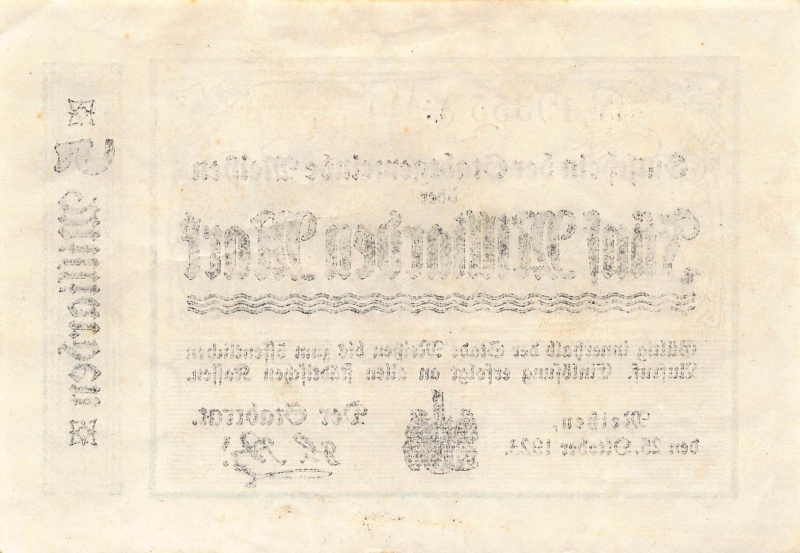 49355 *
Gutschein der Stadtgemeinde Meißen
über
Fünf Milliarden Mark
Gültig innerhalb der Stadt Meißen bis zum öffentlichen
Aufruf. Einlösung erfolgt an allen städtischen Kassen.
Meißen,
den 25. Oktober 1923.
Der Stadtrat.
* 5 Milliarden *